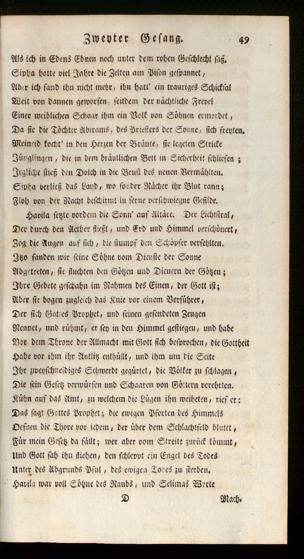 Zweyter Gesang. 49
Als ich in Edens Ebnen noch unter dem rohen Geschlecht saß,
Sipha hatte viel Jahre die Zelten am Pison gespannet,
Aber ich fand ihn nicht mehr, ihn hatt' ein trauriges Schicksal
Weit von dannen geworfen, seitdem der nächtliche Frevel
Einer weiblichen Schaar ihm ein Volk von Söhnen ermordet,
Da sie die Töchter Abirams, des Priesters der Sonne, sich freyten.
Meineid kocht' in den Herzen der Bräute, sie legeten Stricke
Jünglingen, die in dem bräutlichen Bett in Sicherheit schliefen;
Jegliche stieß den Dolch in die Brust des neuen Vermählten.
Sipha verließ das Land, wo sonder Rächer ihr Blut rann;
Floh von der Nacht beschirmt in ferne verschwiegne Gefilde.
Havila setzte vordem die Sonn' auf Altäre. Der Lichtstral,
Der durch den Aether fließt, und Erd und Himmel verschönert,
Zog die Augen auf sich, die stumpf den Schöpfer verfehlten.
Itzo fanden wir seine Söhne vom Dienste der Sonne
Abgetreten, sie fluchten den Götzen und Dienern der Götzen;
Ihre Gebete geschahn im Nahmen des Einen, der Gott ist;
Aber sie bogen zugleich das Knie vor einem Verführer,
Der sich Gottes Prophet, und seinen gesendeten Zeugen
Nennet, und rühmt, er sey in den Himmel gestiegen, und habe
Vor dem Throne der Allmacht mit Gott sich besprochen, die Gottheit
Habe vor ihm ihr Antlitz enthüllt, und ihm um die Seite
Ihr zweyschneidiges Schwerdt gegürtet, die Völker zu schlagen,
Die sein Gesetz verwürfen und Schaaren von Göttern verehrten.
Kühn auf das Amt, zu welchem die Lügen ihn weiheten, rief er:
Das sagt Gottes Prophet; die ewigen Pforten des Himmels
Oefnen die Thore vor jedem, der über dem Schlachtfeld blutet,
Für mein Gesetz da fällt; wer aber vom Streite zurück kömmt,
Und Gott sah ihn fliehen, den schleppt ein Engel des Todes
Unter des Abgrunds Pful, des ewigen Todes zu sterben.
Havila war voll Söhne des Raubs, und Selimas Worte
D Mach-